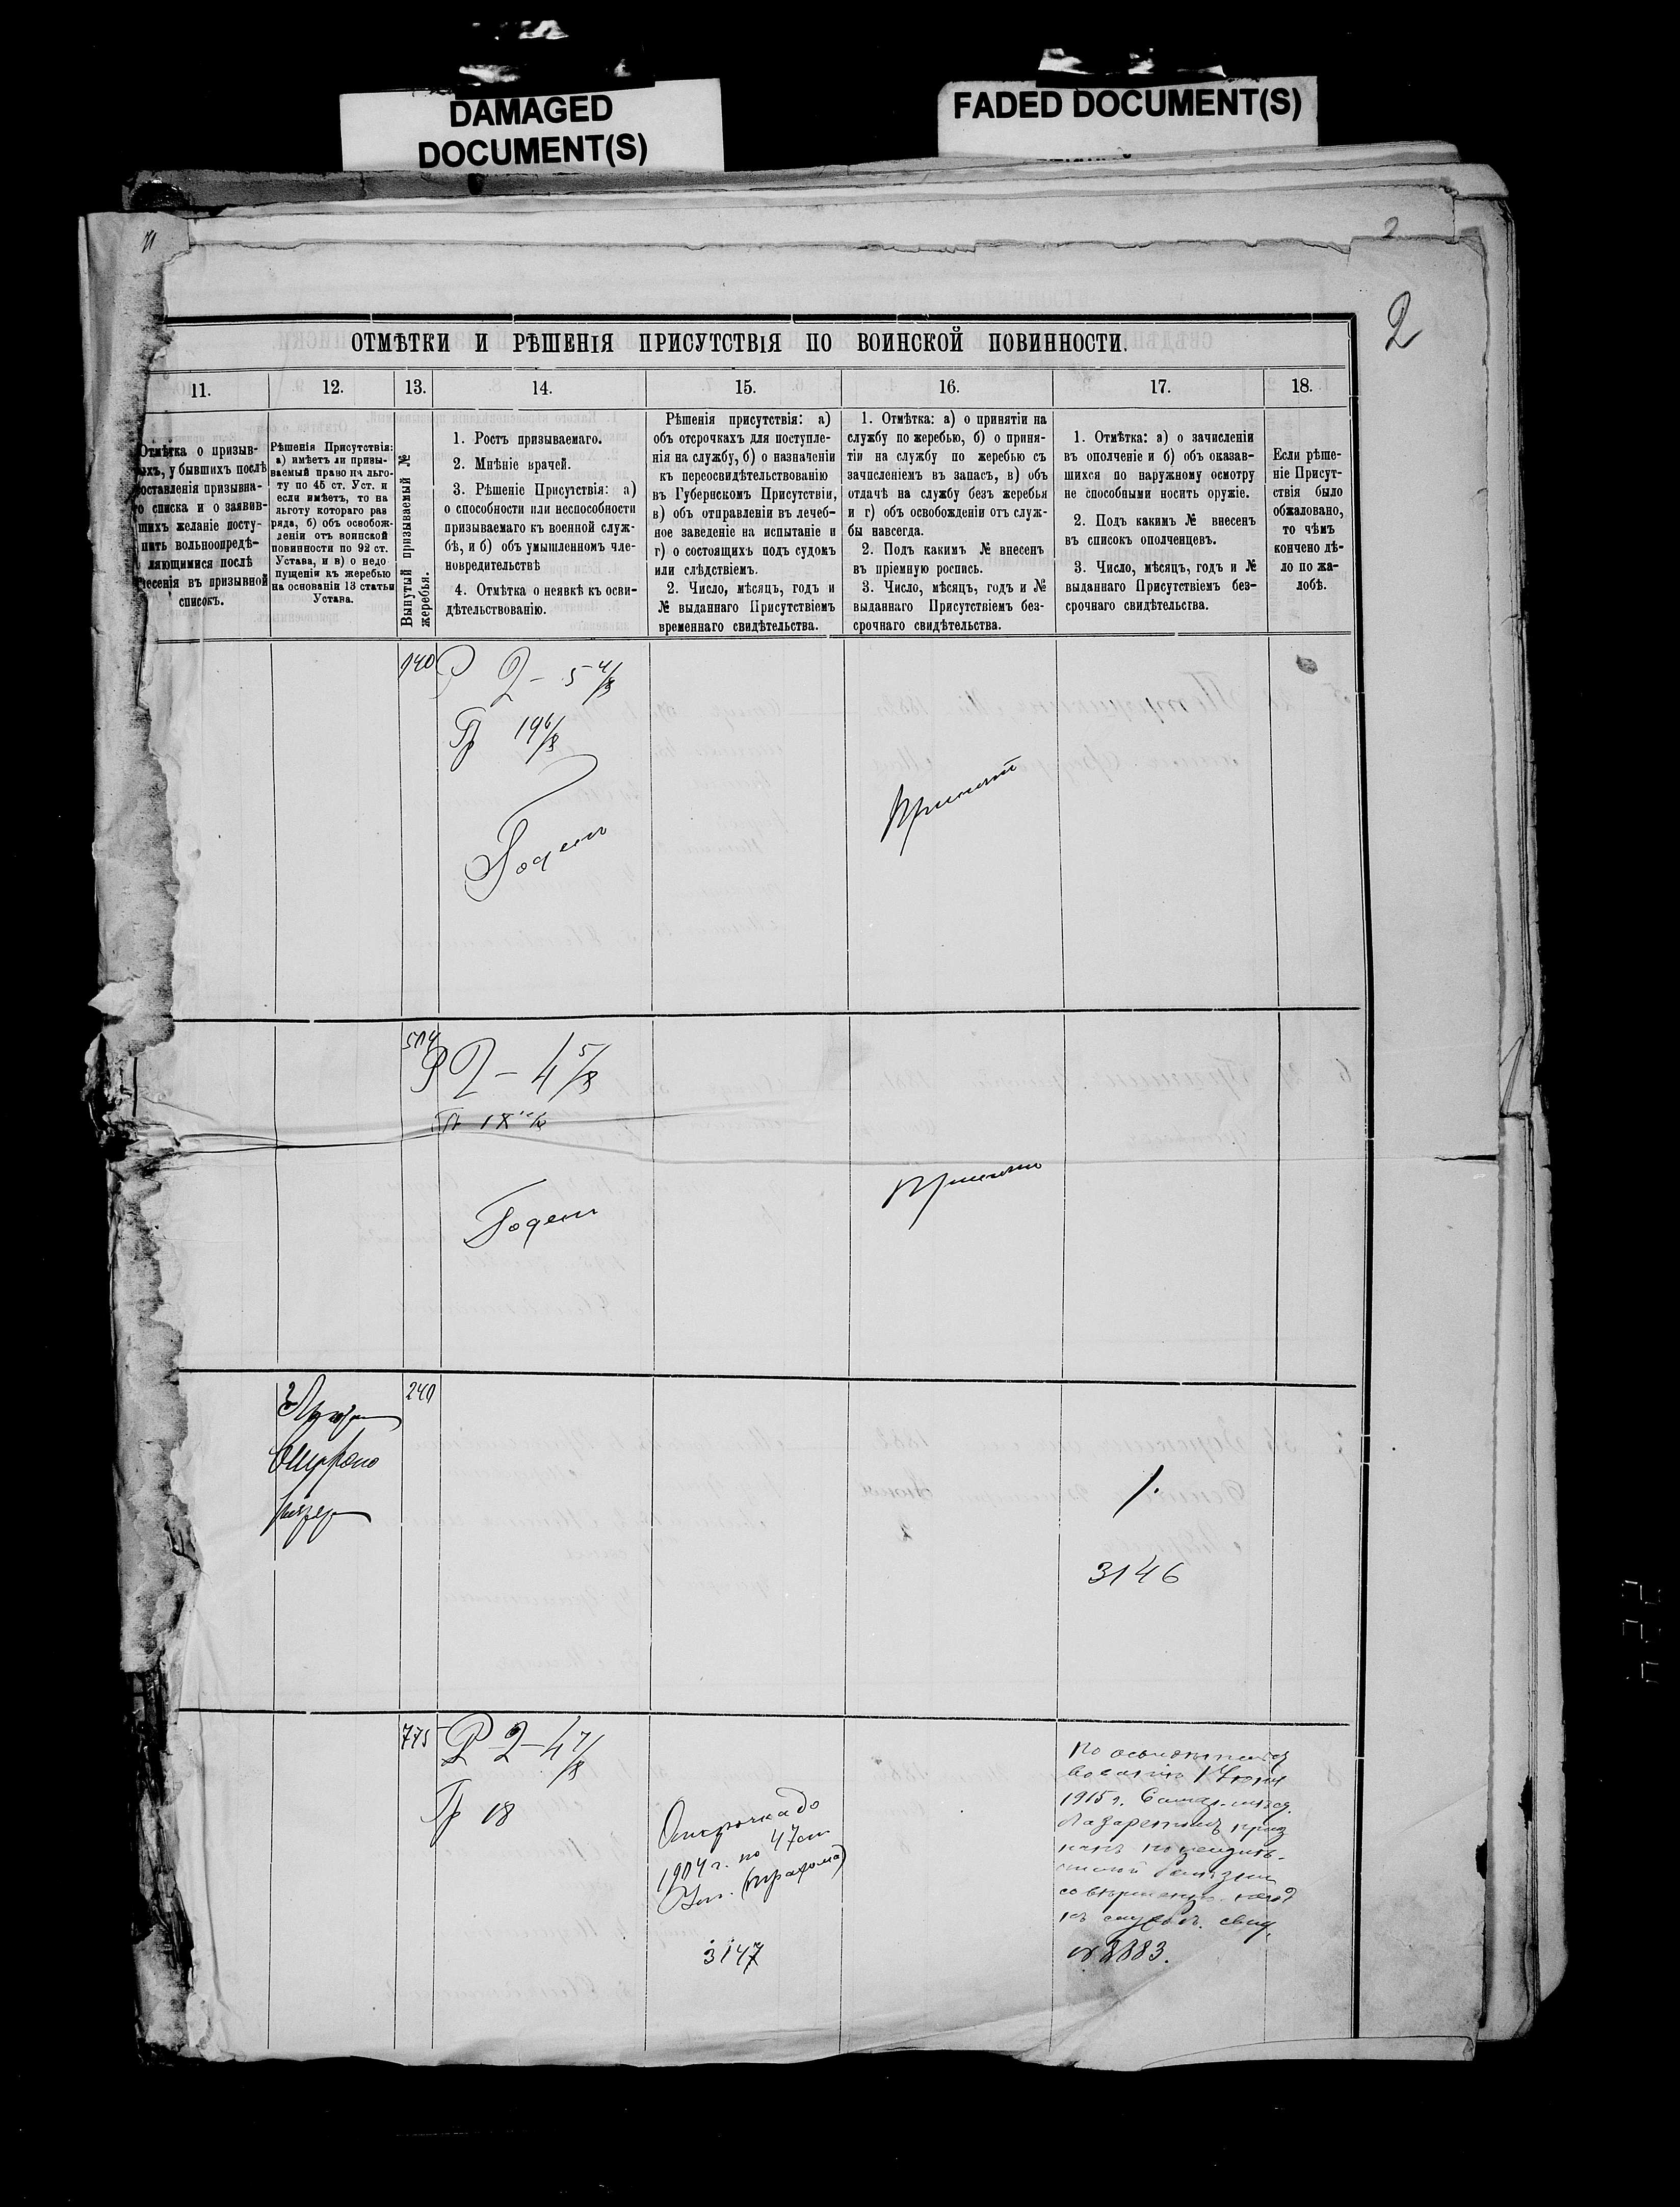 DAMAGED
DOCUMENT(S)
FADED DOCUMENT(S)
2
2
ОТМѢТКИ И РѢШЕНІЯ ПРИСУТСТВІЯ ПО ВОИНСКОЙ ПОВИННОСТИ.
11.
12.
13.
14.
15.
16.
17.
18.
Отмѣтка о призыв-
ыхъ, у бывшихъ послѣ
оставленія призывна-
о списка и о заявив-
шихъ желаніе посту-
пать вольноопредѣ-
ляющимися послѣ
несенія въ призывной
списокъ.
Рѣшенія Присутствія:
а) имѣетъ ли призы-
ваемый право на льго-
ту по 45 ст. Уст. и
если имѣетъ, то на
льготу котораго раз
ряда, б) объ освобож-
деніи отъ воинской
повинности по 92 ст.
Устава, и в) о недо
пущеніи къ жеребью
на основаніи 13 статьи
Устава.
Вынутый призываемый №
жеребья.
1. Ростъ призываемаго.
2. Мнѣніе врачей.
3. Рѣшеніе Присутствія: а)
о способности или неспособности
призываемаго къ военной служ-
бѣ, и б) объ умышленномъ чле-
новредительствѣ
4. Отмѣтка о неявкѣ къ осви-
дѣтельствованію.
Рѣшенія присутствія: а)
объ отсрочкахъ для поступле-
нія на службу, б) о назначеніи
къ переосвидѣтельствованію
въ Губернскомъ Присутствіи,
в) объ отправленіи въ лечеб-
ное заведеніе на испытаніе и
г) о состоящихъ подъ судомъ
или слѣдствіемъ.
2. Число, мѣсяцъ, годъ и
№ выданнаго Присутствіемъ
временнаго свидѣтельства.
1. Отмѣтка: а) о принятіи на
службу по жеребью, б) о приня-
тіи на службу по жеребью съ
зачисленіемъ въ запасъ, в) объ
отдачѣ на службу безъ жеребья
и г) объ освобожденіи отъ служ-
бы навсегда.
2. Подъ какимъ № внесенъ
въ пріемную роспись.
3. Число, мѣсяцъ, годъ и №
выданнаго Присутствіемъ без-
срочнаго свидѣтельства.
1. Отмѣтка: а) о зачисленіи
въ ополченіе и б) объ оказав-
шихся по наружному осмотру
не способными носить оружіе.
2. Подъ какимъ № внесенъ
въ списокъ ополченцевъ.
3. Число, мѣсяцъ, годъ и №
выданнаго Присутствіемъ без-
срочнаго свидѣтельства.
Если рѣше-
ніе Присут-
ствія было
обжаловано,
то чѣмъ
кончено дѣ-
ло по жа-
лобѣ.
140
Р 2 - 5 4/8
Гр 19 6/8
Годенъ
Принятъ
514
Р 2 - 4 5/8
Годенъ
Принятъ
240
разряд
1.
3146
775
Р 2 - 4 7/8
Гр 18
Отсрочка до
1904 г. по 47 ст
Уст. (трахома)
3147
1915 г.
лазаретомъ приз
нанъ по
болѣзни
къ службѣ. свид.
№ 2883.